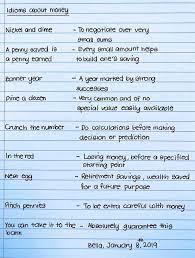 Idioms about money
Nickel and dime - To negotiate over very
small sums
A penny saved is - Every small amount helps
a penny earned to build one's saving
Banner year - A year marked by strong
successes
Dime a dozen - Very common and of no
special value easily available
Crunch the number - Do calculations before making
decision or prediction
In the red - Losing money, before a specified
starting point
Nest egg - Retirement savings, wealth saved
for a future purpose
Pinch pennies - To be extra careful with money
You can take it to the - Absolutely guarantee this
bank
Bella, January 8th, 2019